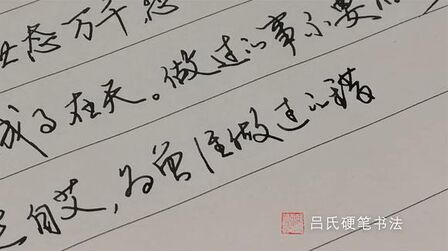 态万千
成在天。做过的事不要
自艾,为曾经做过的错
吕氏硬笔书法